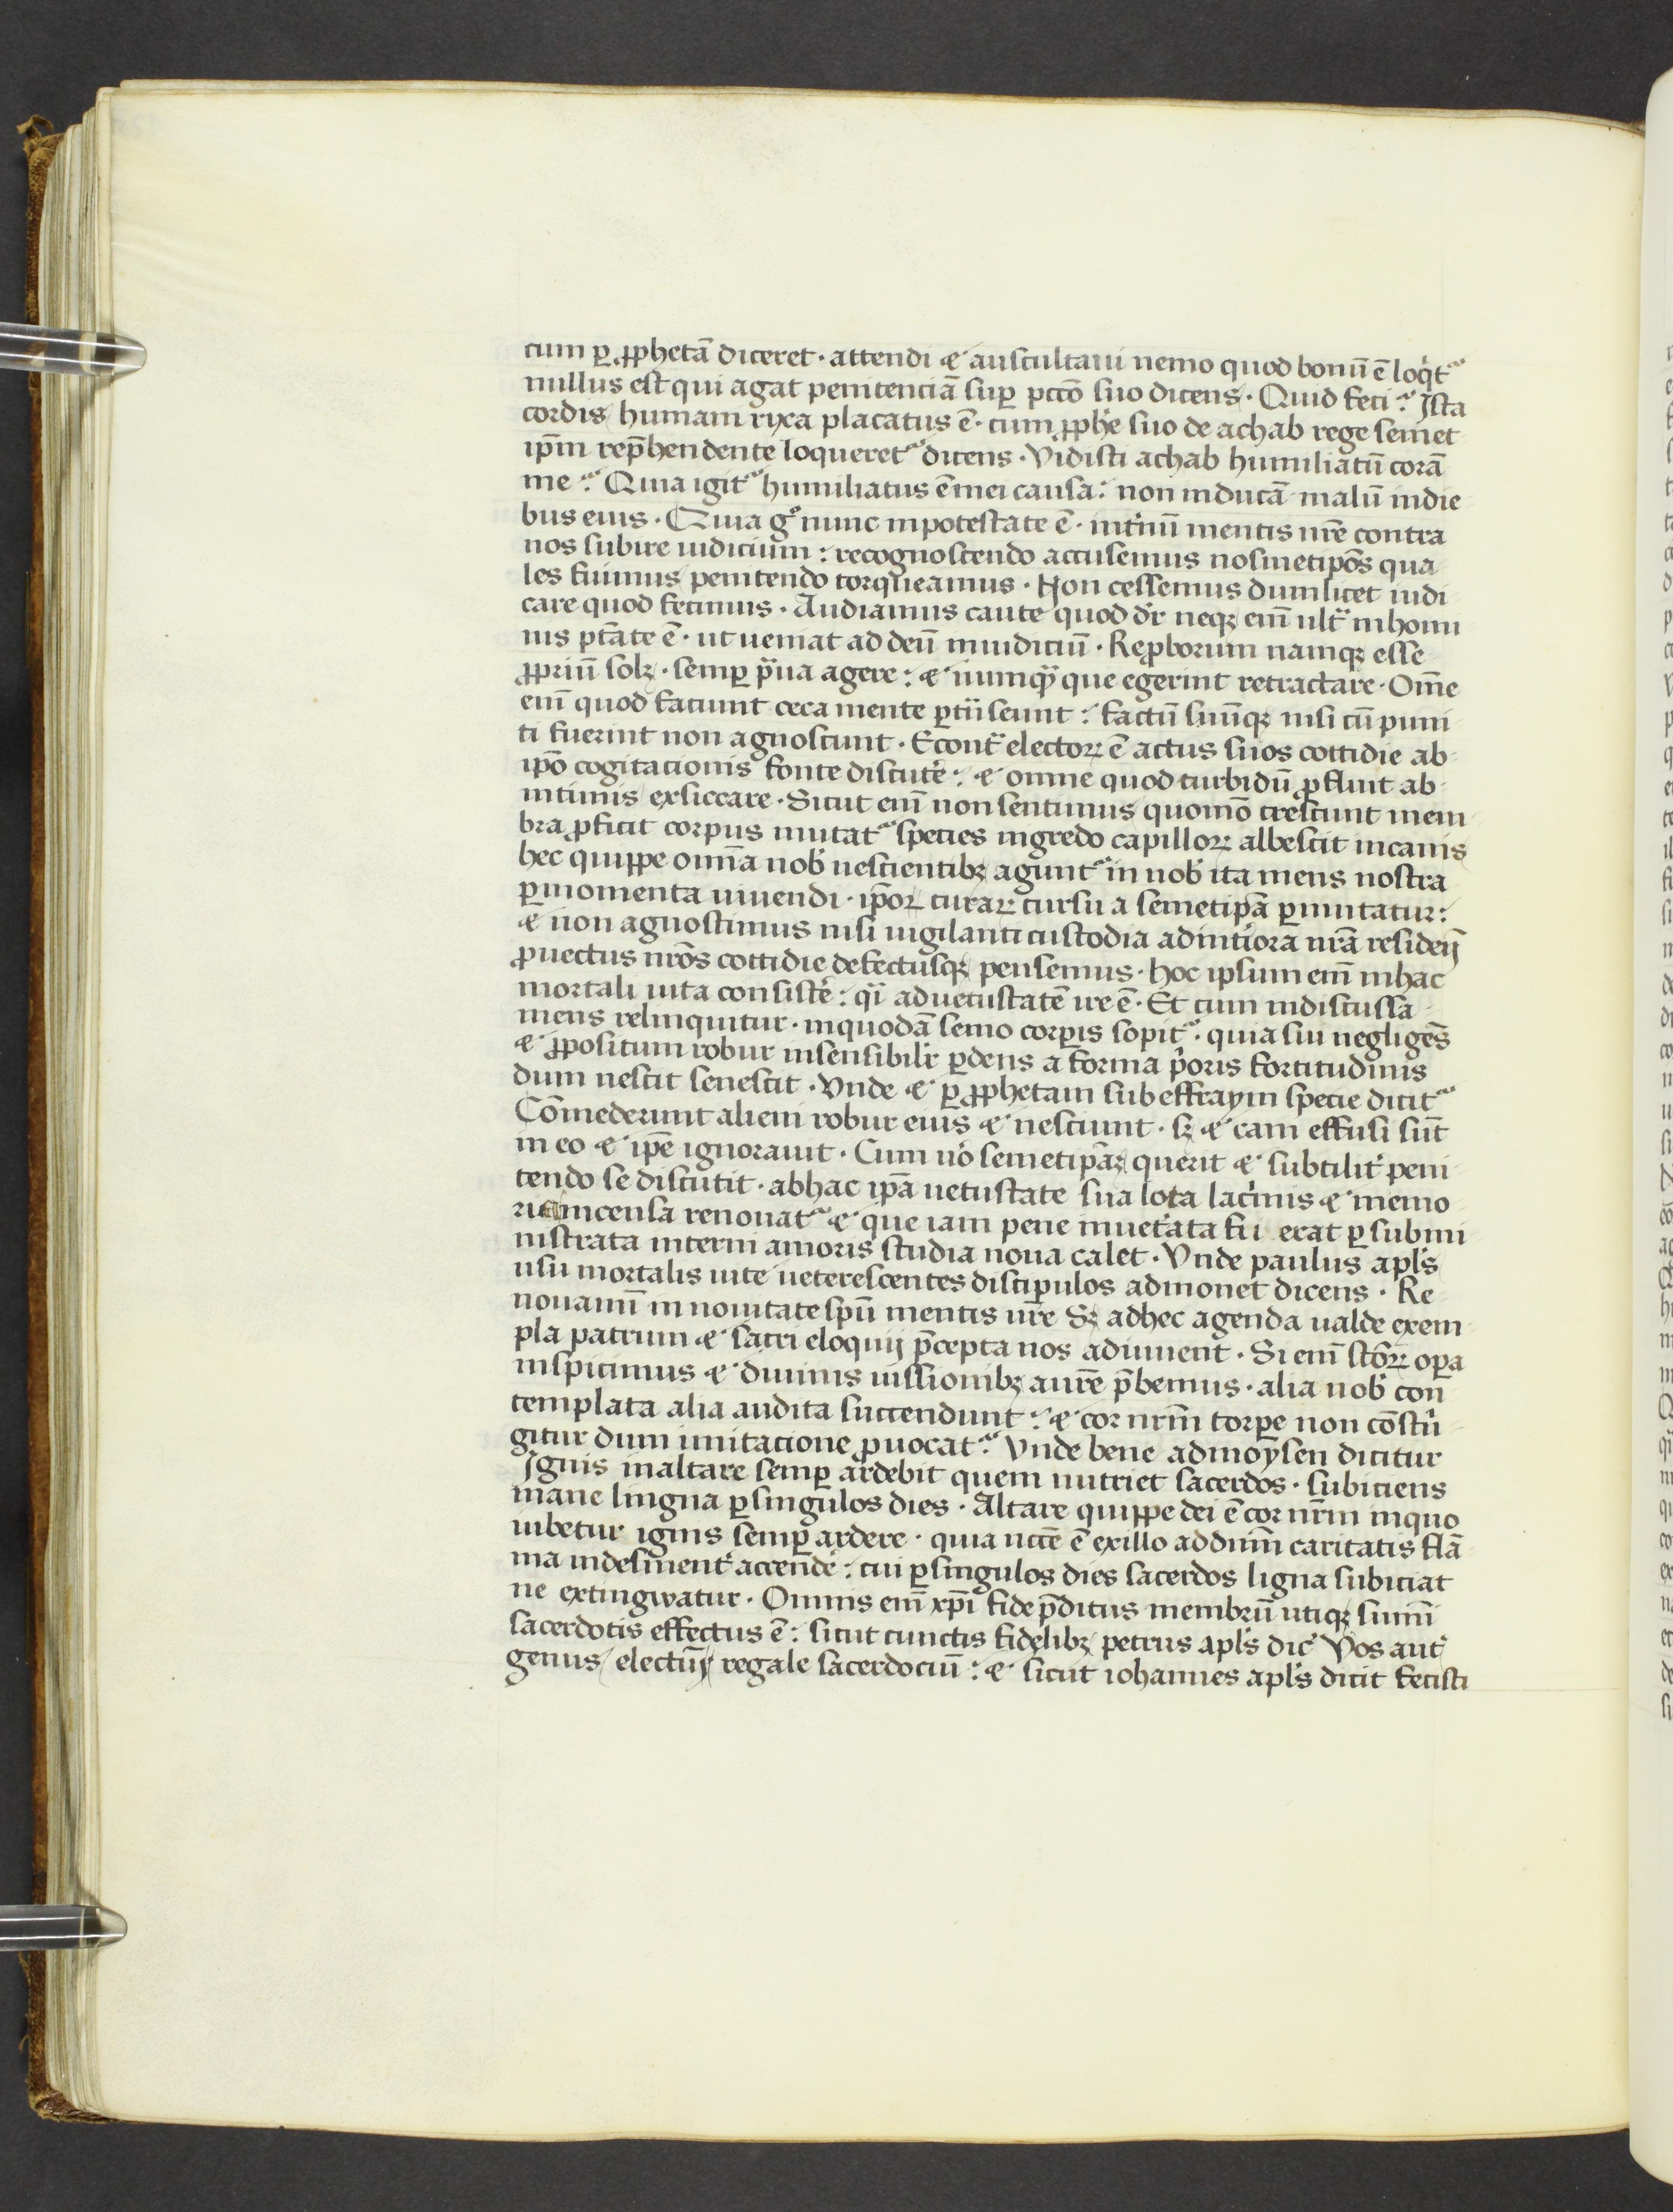 cum ꝑ ꝓphetā diceret · attendi ⁊ auscultaui nemo quod bonū ē loq̇t᷑
nullus est qui agat penitenciā suꝑ pctō suo dicens · Quid feci? Ista
cordis humani ryxa placatus ē · cum ꝓphe suo de achab rege semet
ip̄m rep̄hendente loqueret᷑ dicens · Vidisti achab humiliatū corā
me? Quia igit᷑ humiliatus ē mei causa: non inducā malū in die
bus eius · Quia gͦ nunc in potestate ē · int̓nū mentis nr̄e contra
nos subire iudicium: recognoscendo accusemus nosmetip̄os qua
les fuimus penitendo torqueamus · Non cessemus dum licet iudi
care quod fecimus · Audiamus caute quod dr̄ neqꝫ eni̅ ult̓ in homi
nis ptāte ē · ut ueniat ad deū in iudiciū · Reꝓborum namqꝫ esse
ꝓpriū solꝫ · semꝑ pͣua agere: ⁊ numqͣ que egerint retractare · Om̄e
eni̅ quod faciunt ceca mente ꝑtͣseunt: factū suūqꝫ nisi cū puni
ti fuerint non agnoscunt · Econtͣ electoꝝ ē actus suos cottidie ab
ip̄o cogitacionis fonte discut̓e: ⁊ omne quod turbidū ꝓfluit ab
intimis exsiccare · Sicut eni̅ non sentimus quomō crescunt mem
bra ꝓficit corpus mutat᷑ species nigredo capilloꝝ albescit in canis
hec quippe omīa nob̓ nescientibꝫ agunt᷑ in nob̓ ita mens nostra
ꝑ momenta uiuendi · ip̄oꝝ curaꝝ cursu a semetip̄a ꝑmutatur:
⁊ non agnoscimus nisi uigilanti custodia ad int̓iora nr̄a residen̄
ꝓuectus nr̄os cottidie defectusqꝫ pensemus · hoc ipsum eni̅ in hac
mortali uita consist̓e: qͥ ad uetustatē ire ē · Et cum indiscussa
mens relinquitur · in quodā senio corꝑis sopit᷑ · quia sui negligēs
⁊ ꝓpositum robur insensibilr̓ ꝑdens a forma pͥoris fortitudinis
dum nescit senescit · Vnde ⁊ ꝑ ꝓphetam sub effraym specie dicit᷑
Cōmederunt alieni robur eius ⁊ nesciunt · sꝫ ⁊ cani effusi sūt
in eo ⁊ ip̄e ignorauit · Cum uͦo semetip̄aꝫ querit ⁊ subtilit̓ peni
tendo se discutit · ab hac ip̄a uetustate sua lota lacͥmis ⁊ memo
ria incensa renouat᷑ ⁊ que iam pene inuet̓ata fu erat ꝑ submi
nistrata interni amoris studia noua calet · Vnde paulus apl̓s
usu mortalis uite ueterescentes discipulos admonet dicens · Re
nouamī in nouitate sp̄u mentis ur̄e Sꝫ ad hec agenda ualde exem
pla patrum ⁊ sacri eloquij p̄cepta nos adiuuent · Si eni̅ scōꝝ oꝑa
inspicimus ⁊ diuinis iussionibꝫ aurē p̄bemus · alia nob̓ con
templata alia audita succendunt: ⁊ cor nr̄m torpe non cōstͥ
gitur dum imitacione ꝓuocat᷑. Vnde bene ad moysen dicitur
Ignis in altare semꝑ ardebit quem nutriet sacerdos · subiciens
mane lingna ꝑ singulos dies · Altare quippe dei ē cor nr̄m in quo
iubetur ignis semꝑ ardere · quia necē ē ex illo ad dn̄m caritatis flā
ma indesinent̓ accend̓e: cui ꝑ singulos dies sacerdos ligna subiciat
ne extingwatur · Omnis eni̅ xp̄i fide p̄ditus membrū utiqꝫ sum̄i
sacerdotis effectus ē: sicut cunctis fidelibꝫ petrus apl̓s dic̓ Vos aut̓
genus electū regale sacerdociū: ⁊ sicut iohannes apl̓s dicit fecisti